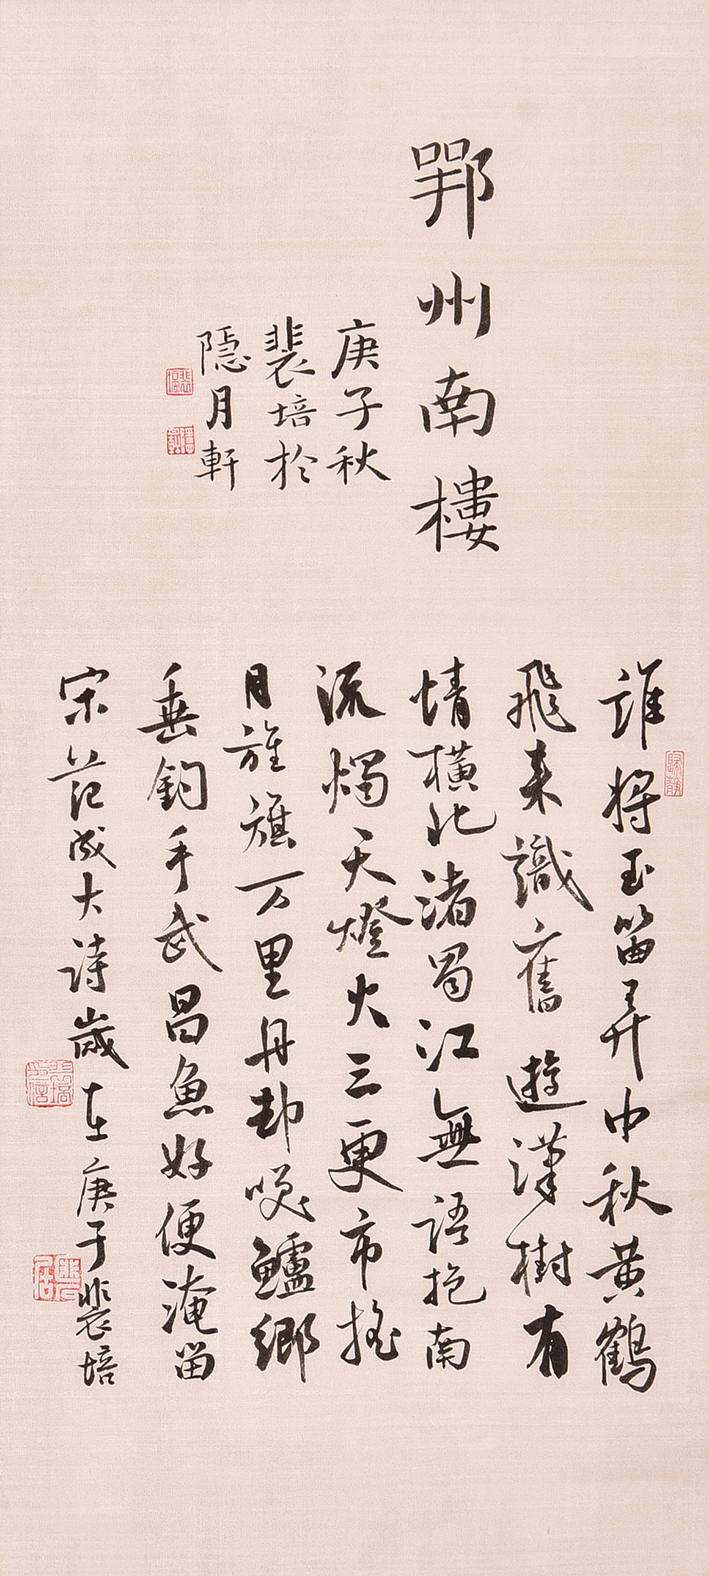 鄂州南樓
庚子秋
裴培於
隱月軒
誰將玉笛弄中秋黄鶴
飛来識舊遊漢樹有
情横北渚蜀江無語抱南
流燭天燈火三更市摇
月旌旗万里舟却笑鱸鄉
垂釣手武昌魚好便淹留
宋范成大詩歲在庚子裴培